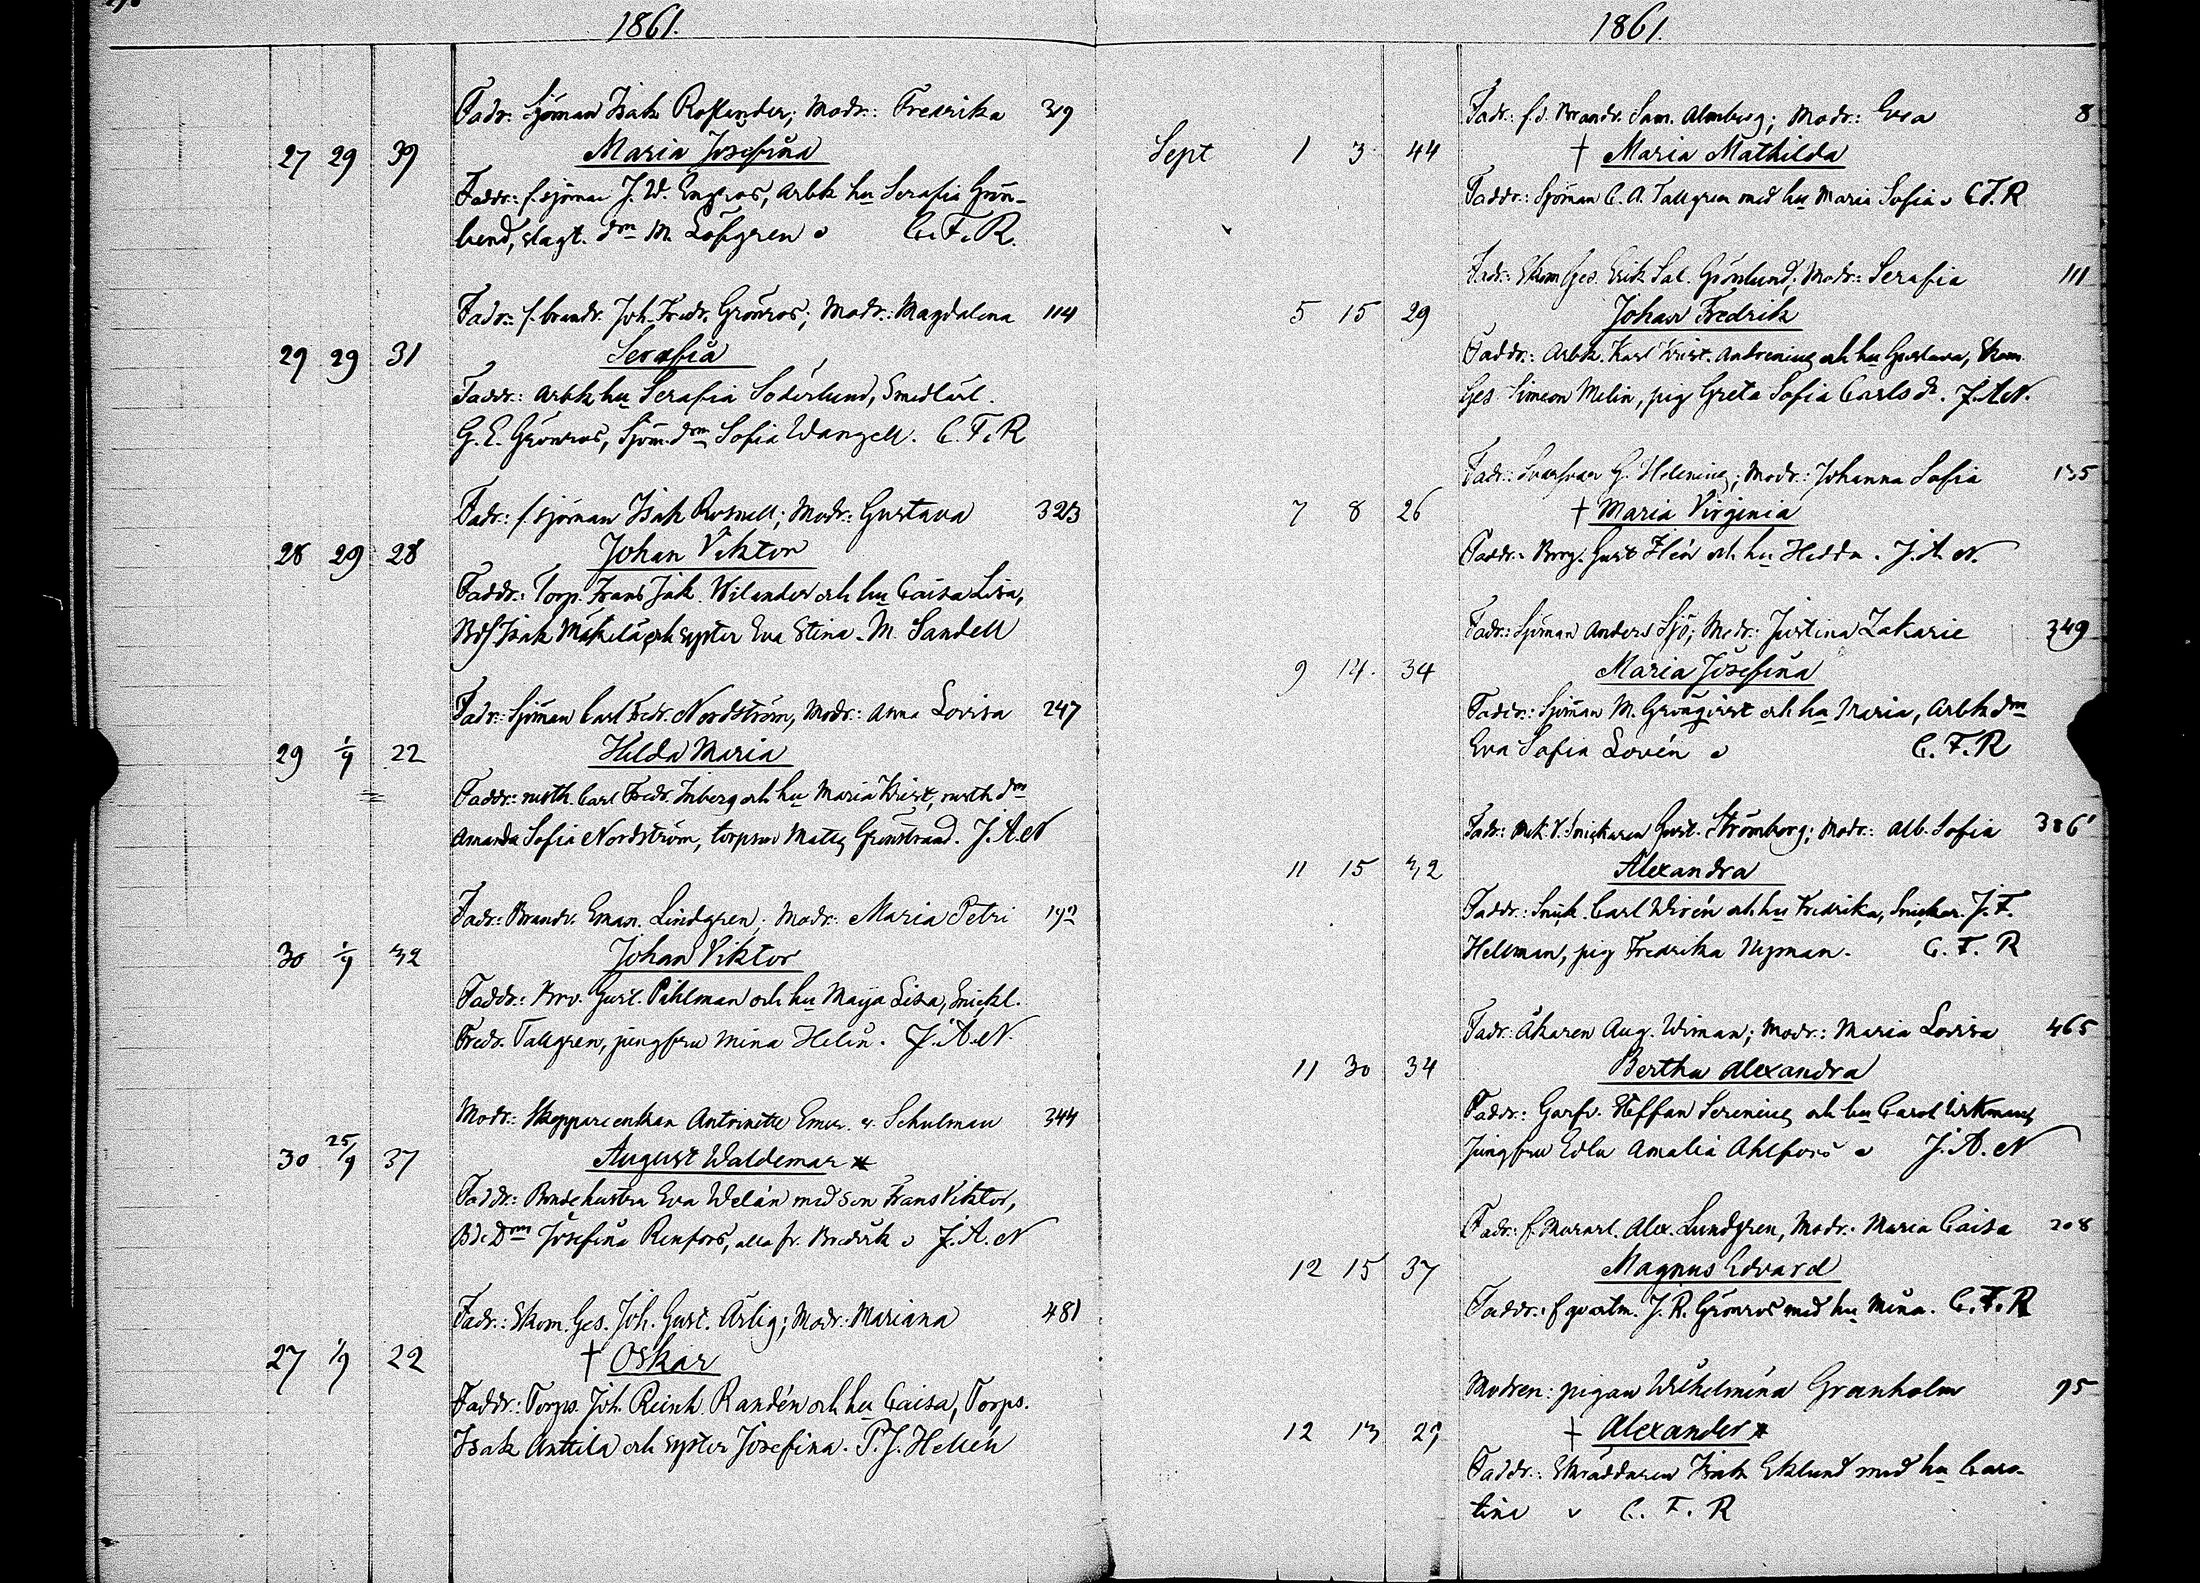 1861.
Fadr: Sjöman Isak Roslander; Modr: Fredrika 319
27 29 39 Maria Josefina
Faddr: f. sjöman J. W. Engros, Arbk hu Serafia Grön-
lund, slagt. dm M. Löfgren C. F. R.
Fadr: f. brandv. Joh. Fredr. Grönros; Modr: Magdalena 114
29 29 31 Serafia
Faddr: Arbk hu Serafia Söderlund, Smedlärl.
G. E. Grönros, Sjöm. dm Sofia Wangell. C. F. R
Fadr: f. sjöman Isak Rosnell; Modr: Gustava 323
28 29 28 Johan Viktor
Faddr: Torp. Frans Jak. Wilander och hu Caisa Lisa,
Isak Mäkelä och syster Eva Stina. M. Sandell
Fadr: Sjöman Carl Fredr. Nordström, Modr: Anna Lovisa 247
29 1/9 22 Hilda Maria
Faddr: Carl Fredr. Inberg och hu Maria Krist., dm
Amanda Sofia Nordström, torpson Matts Grönstrand. J. A. N
Fadr: Brandv. Eman. Lindgren; Modr: Maria Petri 192
30 1/9 32 Johan Viktor
Faddr: Gust. Påhlman och hu Maja Lisa, Snickl.
Fredr. Tallgren, jungfru Mina Helin. J. A. N.
Modr: Skeppareenkan Antoinette Schulman 344
30 25/9 37 August Waldemar *
Faddr: Bondehustru Eva Welán med son Frans Viktor,
Bde Dm Josefina Renfors, alla fr. J. A. N
Fadr: Skom. Ges. Joh. Gust. Ärlig; Modr: Mariana 481
27 1/9 22 † Oskar
Faddr: Torps. Joh. Reinh. Randén och hu Caisa, Torps.
Isak Anttila och syster Josefina. P. J. Hellén
1861.
Fadr: f. d. Brandv. Sam. Almberg; Modr: Eva 8
Sept 1 3 44 † Maria Mathilda
Faddr: Sjöman C. A. Tallgren med hu Maria Sofia C. F. R
Fadr: Skom Ges. Erik Sal. Grönlund; Modr: Serafia 111
5 15 29 Johan Fredrik
Faddr: Arbk. Karl Krist. Andrenius och hu Gustava, Skom.
Ges Simeon Melin, pig Greta Sofia Carlsdr. J. A. N.
Fadr: G. Helenius; Modr: Johanna Sofia 135
7 8 26 † Maria Virginia
Faddr: Borg. Gust Flén och hu Hedda. J. A. N.
Fadr: Sjöman Anders Sjö; Modr: Justina Zakarie 349
9 14 34 Maria Josefina
Faddr: Sjöman M. Grönqvist och hu Maria, Arbk dm
Eva Sofia Lovén C. F. R
Fadr: Snickaren Gust. Strömborg; Modr: Alb. Sofia 386
11 15 32 Alexandra
Faddr: Snick. Carl Wirén och hu Fredrika, Snickar. J. F.
Hellman, pig Fredrika Nyman. C. F. R
Fadr: Åkaren Aug. Wiman; Modr: Maria Lovisa 465
11 30 34 Bertha Alexandra
Faddr: Garfv. Steffan Serenius och hu Carol.
Jungfru Edla Amalia Ahlfors J. A. N
Fadr: f. Murarl. Alex. Lundgren, Modr: Maria Caisa 208
12 15 37 Magnus Edvard
Faddr: J. R. Grönros med hu Mina. C. F. R
Modren: pigan Wilhelmina Granholm 95
12 13 29 † Alexander *
Faddr: Skräddaren Isak Eklund med hu Caro-
lina C. F. R